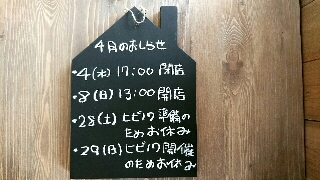 4月のおしらせ
・4(水) 17:00 閉店
・8(日) 13:00 閉店
・28(土) ヒビノワ 準備の
ためお休み
・29(日) ヒビノワ 開催
のためお休み